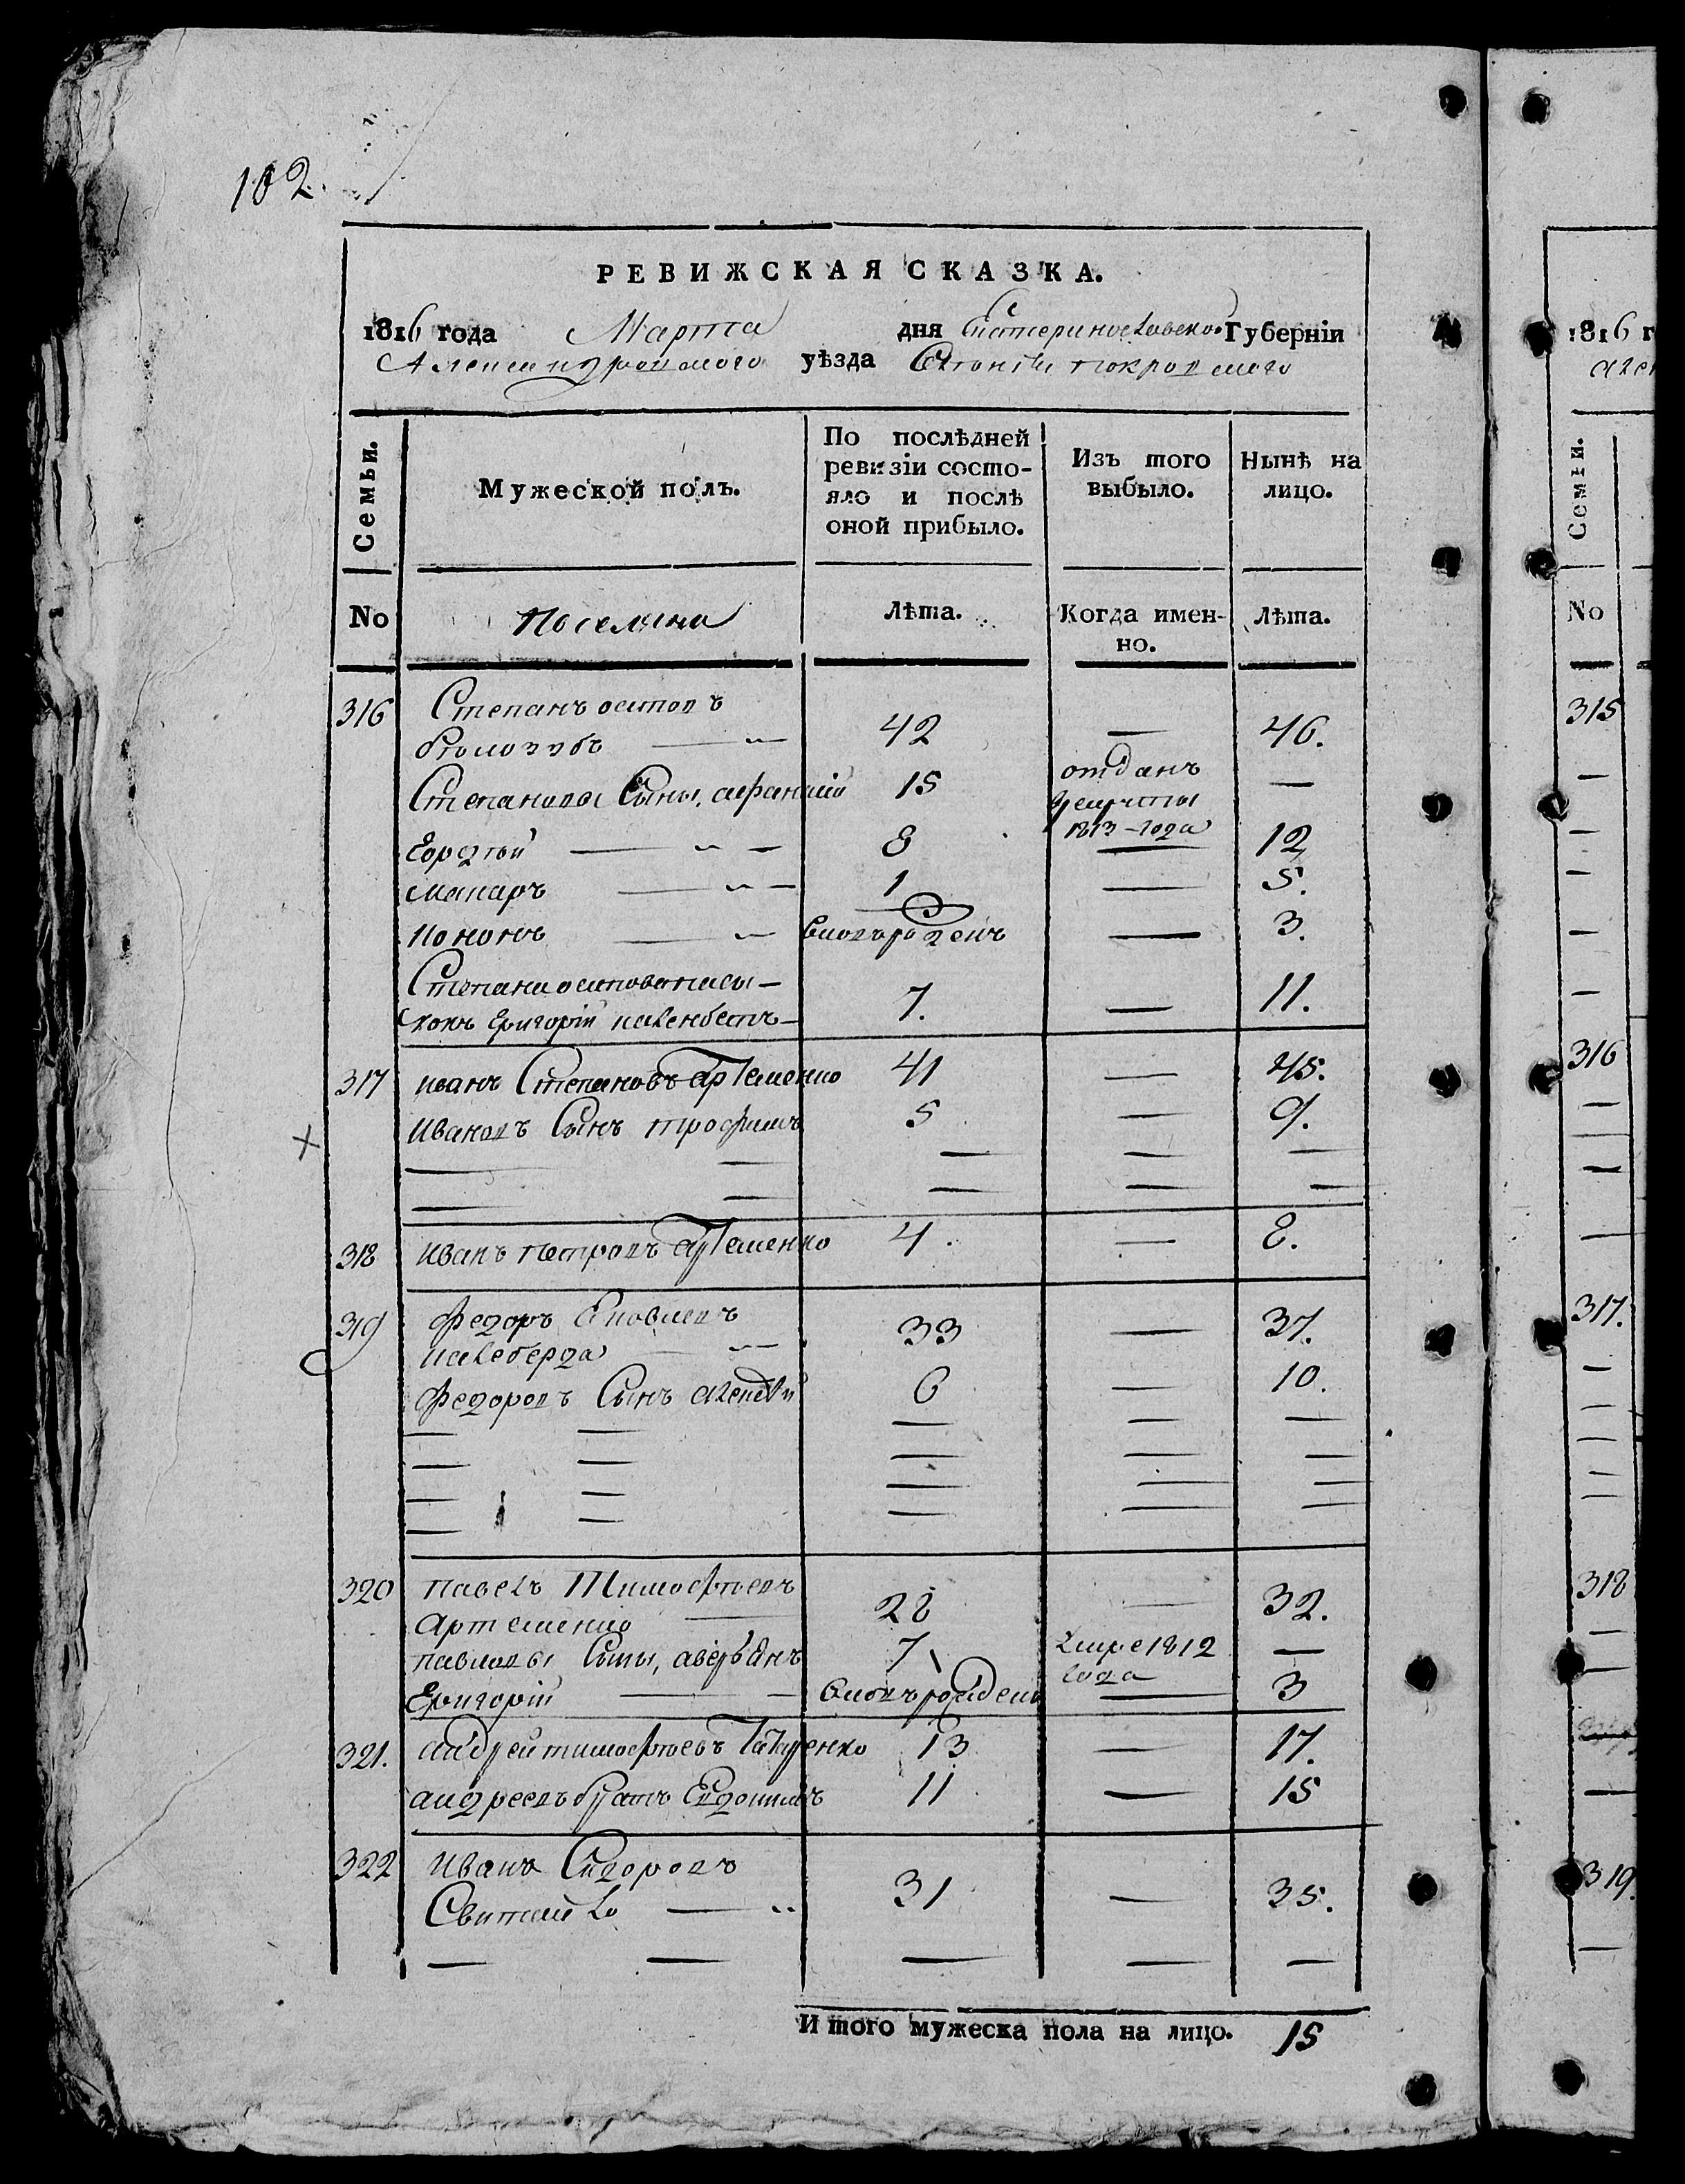 102.
РЕВИЖСКАЯ СКАЗКА.
1816 года Марта дня Екатеринославской Губерніи
Александровского уѣзда покровского
Семьи. Мужеской полъ. По послѣдней ревизіи состояло и послѣ оной прибыло. Изъ того выбыло. Нынѣ на лицо.
No Поселяне Лѣта. Когда именно. Лѣта.
316 Степанъ осиповъ
42 — 46.
Степановы Сыны, афанасій 15 отданъ —
1813 года
8 — 12
макаръ 1 — 5.
кононъ вновьрожденъ — 3.
Степана осипова
Григорій 7. — 11.
317 иванъ Степановъ Артеменко 41 — 45.
ивановъ Сынъ трофимъ 5 — 9.
318 иванъ петровъ Артеменко 4. — 8.
319 Федоръ Яковлевъ
калеберда 33 — 37.
Федоровъ Сынъ 6 — 10.
320 павелъ Тимофѣевъ
Артеменко 28 — 32.
павловы Сыны, аверьянъ 7 умре 1812 —
года
Григорій вновьрожденъ — 3
321. андрей тимофѣевъ 13 — 17.
андреевъ братъ Евдокимъ 11 — 15
322 иванъ Сидоровъ
31 — 35.
Итого мужеска пола на лицо. 15
1816 г
Семьи.
No
315
316
317.
318
319.